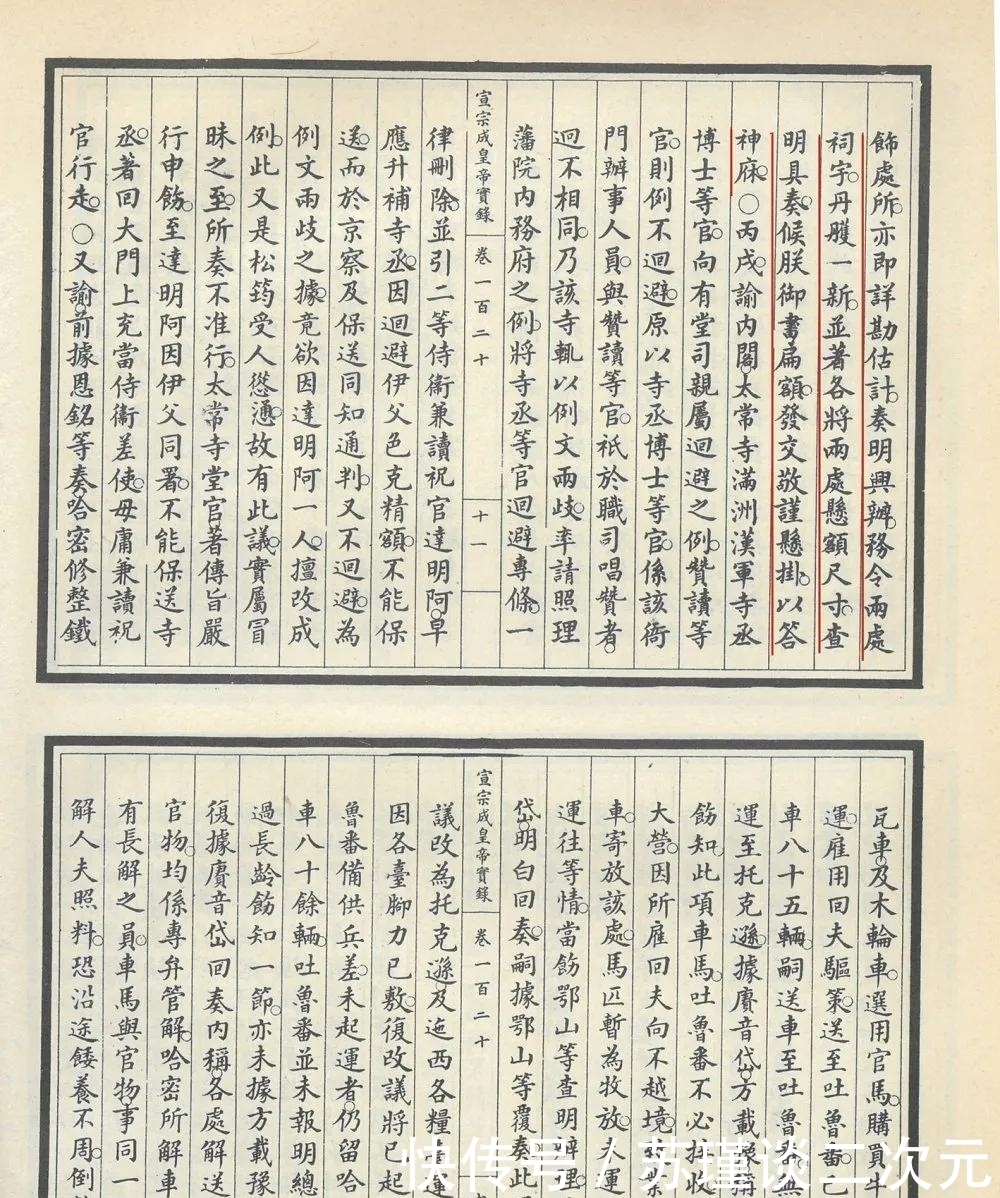 飾處所亦即詳勘估計奏明興辦務令兩處
祠宇丹雘一新並著各將兩處懸額尺寸查
明具奏候朕御書扁額發交敬謹懸掛以答
神庥○丙戌諭內閣太常寺滿洲漢軍寺丞
博士等官向有堂司親屬迴避之例贊讀等
官則例不迴避原以寺丞博士等官係該衙
門辦事人員與贊讀等官祇於職司唱贊者
迥不相同乃該寺輒以例文兩歧率請照理
藩院內務府之例將寺丞等官迴避專條一
宣宗成皇帝實錄 卷一百二十 十一
律刪除並引二等侍衞兼讀祝官達明阿早
應升補寺丞因迴避伊父色克精額不能保
送而於京察及保送同知通判又不迴避為
例文兩歧之據竟欲因達明阿一人擅改成
例此又是松筠受人慫慂故有此議實屬冒
昧之至所奏不准行太常寺堂官著傳旨嚴
行申飭至達明阿因伊父同署不能保送寺
丞著回大門上充當侍衞差使毋庸兼讀祝
官行走○又諭前據恩銘等奏哈密修整鐵
瓦車及木輪車選用官馬購買牛
運雇用回夫驅策送至吐魯番已
車八十五輛嗣送車至吐魯番無
運至托克遜據賡音岱方載豫稱
飭知此項車馬吐魯番不必扣收
大營因所雇回夫向不越境
車寄放該處馬匹暫為牧放夫運
運往等情當飭鄂山等查明辦理
岱明白回奏嗣據鄂山等覆奏此
宣宗成皇帝實錄 卷一百二十
議改為托克遜及迤西各糧臺運
因各臺腳力已敷復改議將已起
魯番備供兵差未起運者仍留哈
車八十餘輛吐魯番並未報明總
過長齡飭知一節亦未據方載豫
復據賡音岱回奏內稱各處解送
官物均係專弁管解哈密所解車
有長解之員車馬與官物事同一
解人夫照料恐沿途餧養不周倒
快传号 / 苏瑾谈二次元